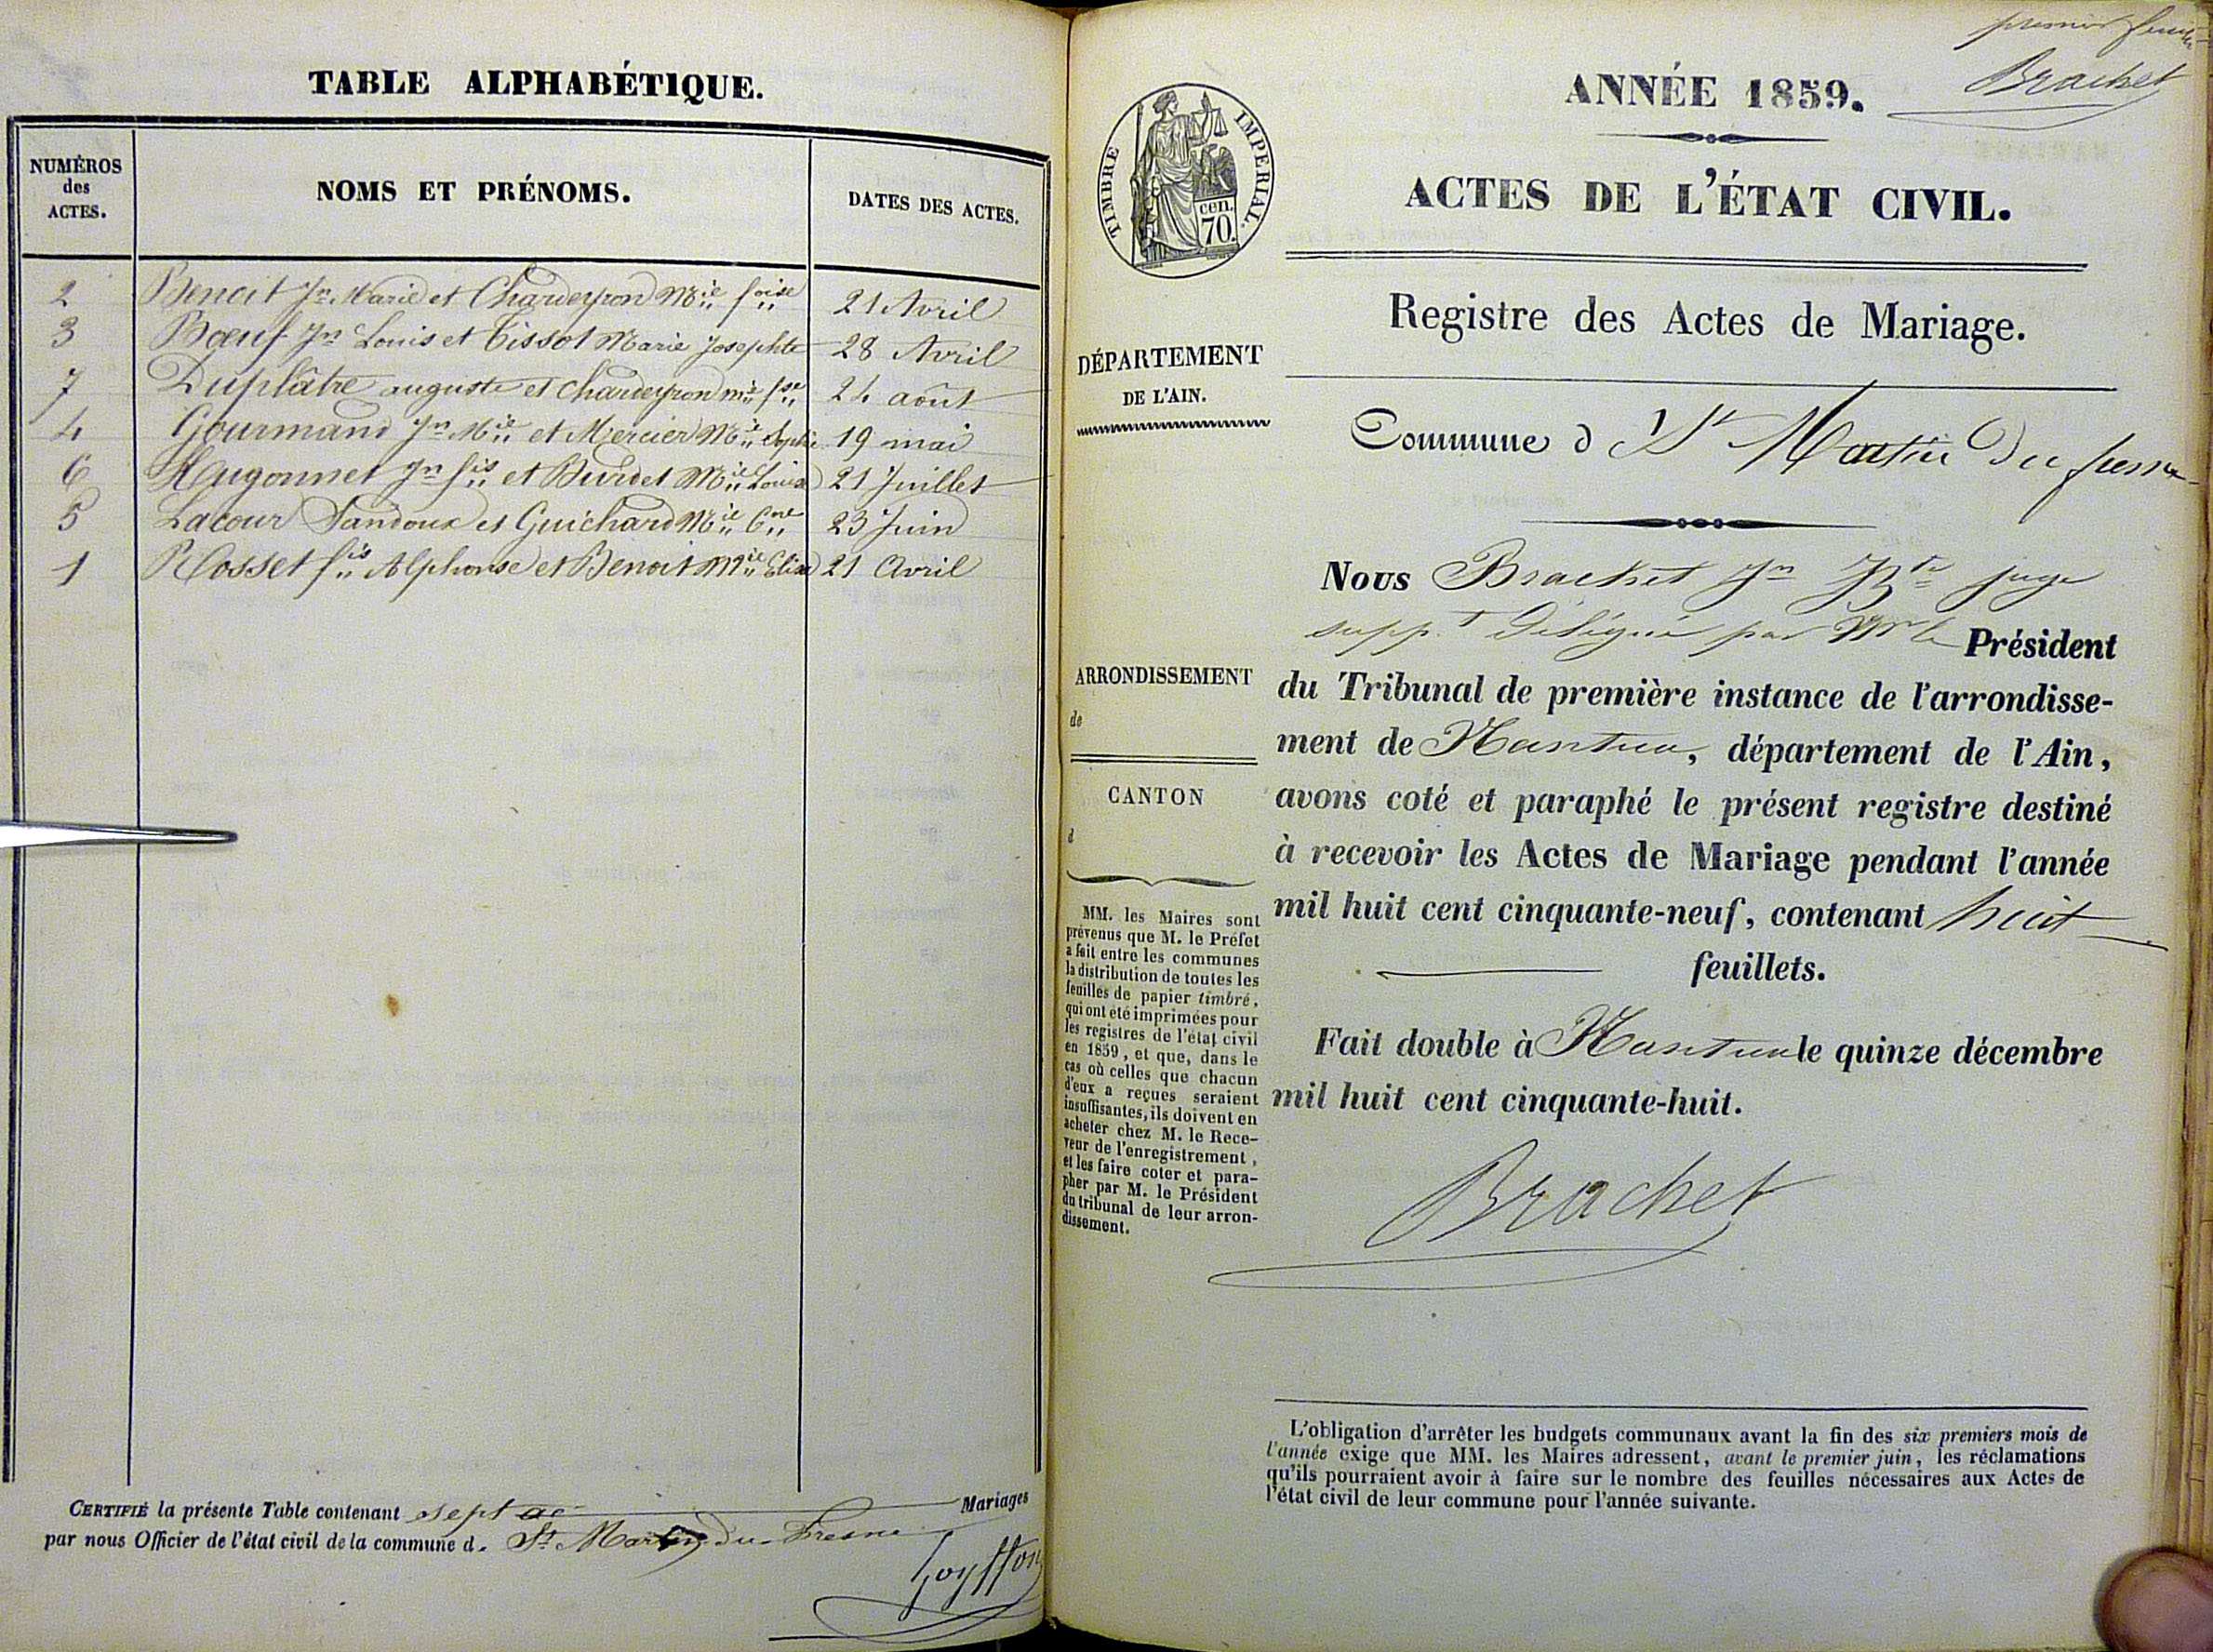 TABLE ALPHABÉTIQUE.
NUMÉROS
des
ACTES.
NOMS ET PRÉNOMS.
DATES DES ACTES.
2 Benoit Jn. Marie et Chardeyron Mie foise 21 Avril
3 Bœuf Jn Louis et Tissot Marie Josephte 28 Avril
7 Duplâtre auguste et Chardeyron mie fse 24 août
4 Gourmand Jn Mie et Mercier Mie Sophie 19 mai
6 Hugonnet Jn fis et Burdet Mie Louise 21 Juillet
5 Lacour Sandoux et Guichard Mie Cne 23 Juin
1 Rosset fis Alphonse et Benoit Mie Elisa 21 Avril
CERTIFIÉ la présente Table contenant sept Mariages
par nous Officier de l'état civil de la commune d. St Martin-du-Fresne
Goyffon
premier feuillet
Brachet
ANNÉE 1859.
TIMBRE IMPERIAL.
cen.
70.
ACTES DE L'ÉTAT CIVIL.
Registre des Actes de Mariage.
DÉPARTEMENT
DE L'AIN.
Commune d St Martin du fresne
Nous Brachet Jn Bte juge
supp.t délégué par Mr le Président
du Tribunal de première instance de l'arrondisse-
ment de Nantua, département de l'Ain,
avons coté et paraphé le présent registre destiné
à recevoir les Actes de Mariage pendant l'année
mil huit cent cinquante-neuf, contenant huit
feuillets.
Fait double à Nantua le quinze décembre
mil huit cent cinquante-huit.
Brachet
ARRONDISSEMENT
de
CANTON
d
MM. les Maires sont
prévenus que M. le Préfet
a fait entre les communes
la distribution de toutes les
feuilles de papier timbré,
qui ont été imprimées pour
les registres de l'état civil
en 1859, et que, dans le
cas où celles que chacun
d'eux a reçues seraient
insuffisantes, ils doivent en
acheter chez M. le Rece-
veur de l'enregistrement,
et les faire coter et para-
pher par M. le Président
du tribunal de leur arron-
dissement.
L'obligation d'arrêter les budgets communaux avant la fin des six premiers mois de
l'année exige que MM. les Maires adressent, avant le premier juin, les réclamations
qu'ils pourraient avoir à faire sur le nombre des feuilles nécessaires aux Actes de
l'état civil de leur commune pour l'année suivante.